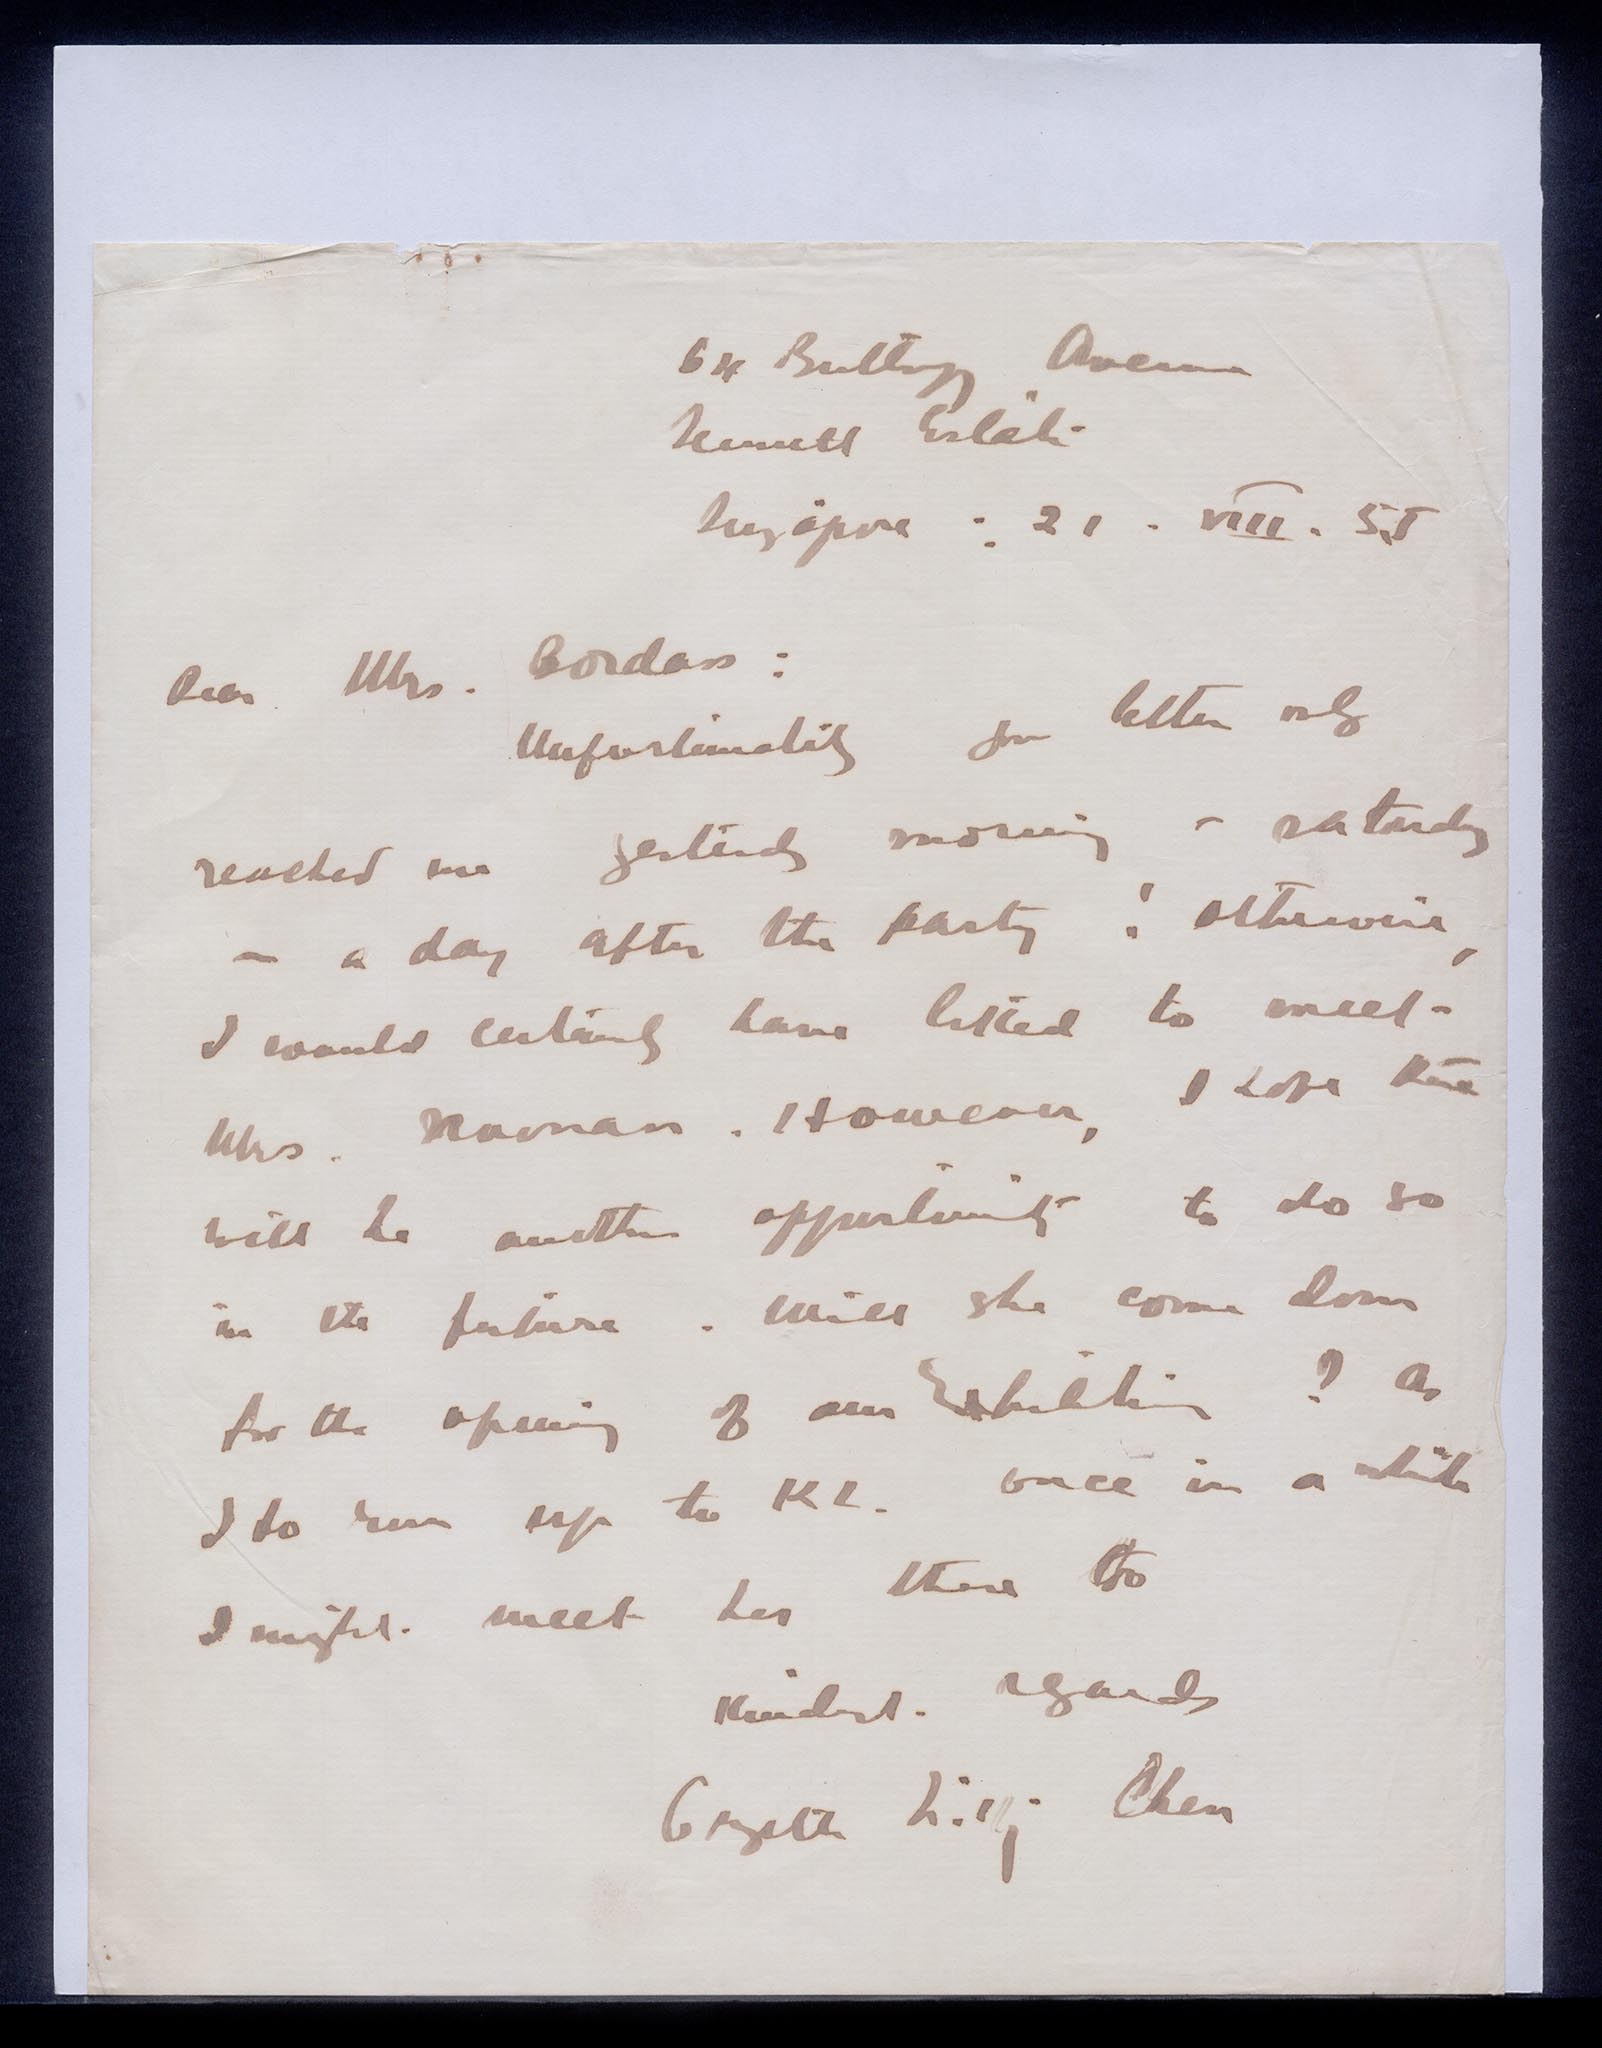 64 Butterfly Avenue
Sennett Estate
Singapore : 21 . VIII . 55
Dear Mrs. Bordass :
Unfortunately your letter only
reached me yesterday morning - Saturday
- a day after the party ! Otherwise,
I would certainly have liked to meet
Mrs. . However, I hope there
will be another opportunity to do so
in the future . Will she come down
for the opening of our Exhibition ? As
I do run up to K L . once in a while
I might meet her there too
Kindest regards
Georgette Liying Chen